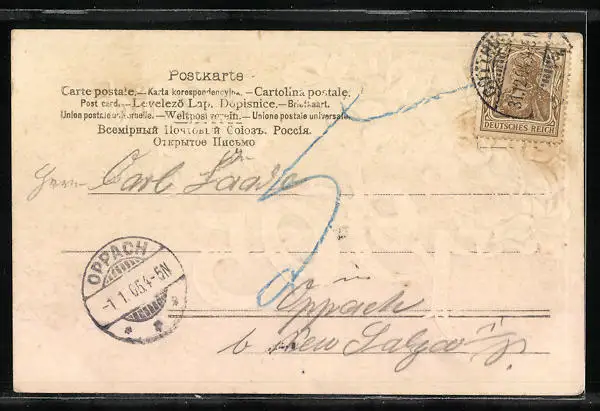 Postkarte
Carte postale.—Karta korespondencyjna.—Cartolina postale.
Post card.—Levelező Lap. Dopisnice.—Briefkaart.
Union postale universelle.—Weltpostverein.—Unione postale universale
Всемірный Почтовый Союзъ. Россія.
Открытое Письмо
DEUTSCHES REICH
31.12.04
Herrn Carl
OPPACH
1.1.05.4-5N
in
Oppach
b Neu Salza i/S.